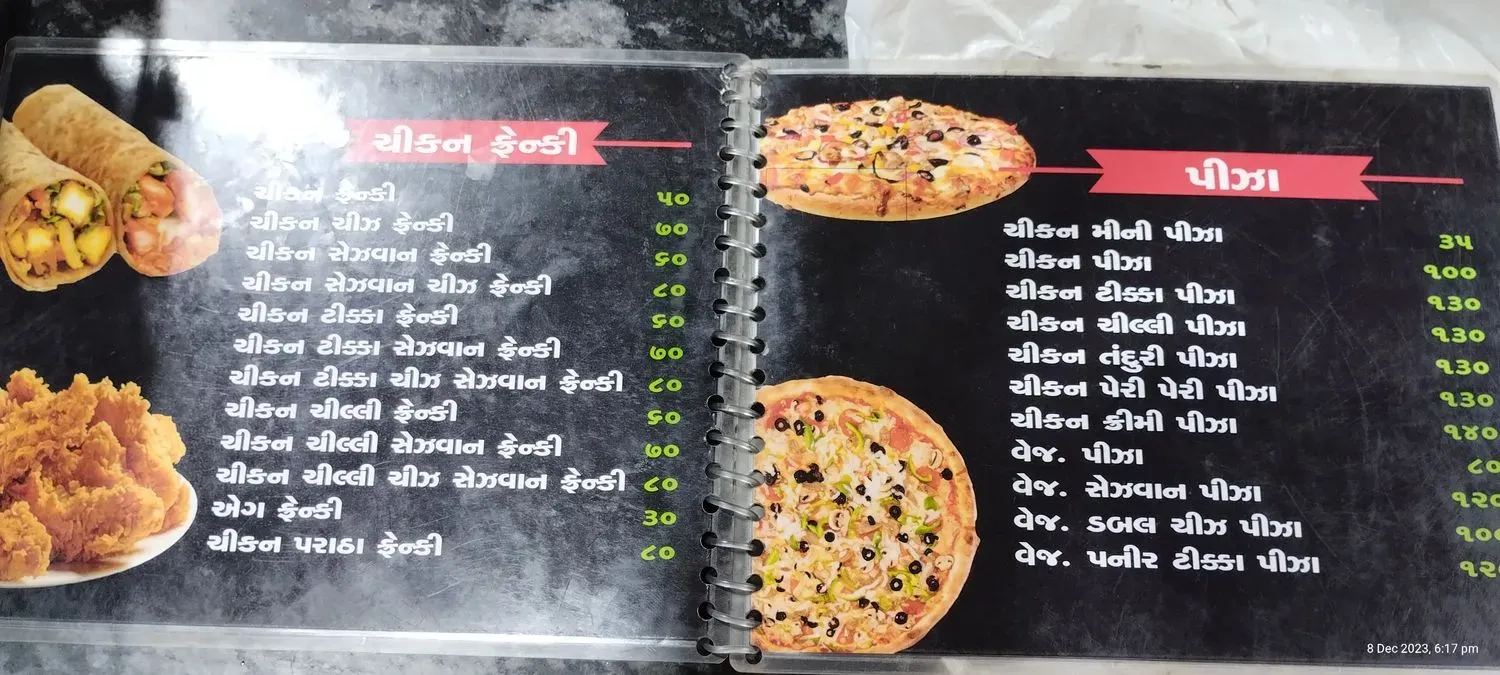 ચીકન ફ્રેન્કી
ચીકન ફ્રેન્કી ૫૦
ચીકન ચીઝ ફ્રેન્કી ૭૦
ચીકન સેઝવાન ફ્રેન્કી ૬૦
ચીકન સેઝવાન ચીઝ ફ્રેન્કી ૮૦
ચીકન ટીક્કા ફ્રેન્કી ૬૦
ચીકન ટીક્કા સેઝવાન ફ્રેન્કી ૭૦
ચીકન ટીક્કા ચીઝ સેઝવાન ફ્રેન્કી ૮૦
ચીકન ચીલ્લી ફ્રેન્કી ૬૦
ચીકન ચીલ્લી સેઝવાન ફ્રેન્કી ૭૦
ચીકન ચીલ્લી ચીઝ સેઝવાન ફ્રેન્કી ૮૦
એગ ફ્રેન્કી ૩૦
ચીકન પરાઠા ફ્રેન્કી ૮૦
પીઝા
ચીકન મીની પીઝા ૩૫
ચીકન પીઝા ૧૦૦
ચીકન ટીક્કા પીઝા ૧૩૦
ચીકન ચીલ્લી પીઝા ૧૩૦
ચીકન તંદુરી પીઝા ૧૩૦
ચીકન પેરી પેરી પીઝા ૧૩૦
ચીકન ક્રીમી પીઝા ૧૪૦
વેજ. પીઝા ૮૦
વેજ. સેઝવાન પીઝા ૧૨૦
વેજ. ડબલ ચીઝ પીઝા ૧૦૦
વેજ. પનીર ટીક્કા પીઝા
8 Dec 2023, 6:17 pm